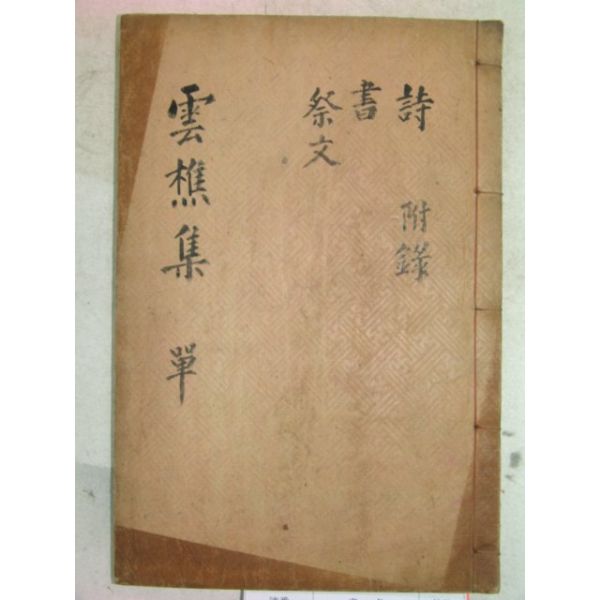 詩 附錄
書
祭文
雲樵集 單